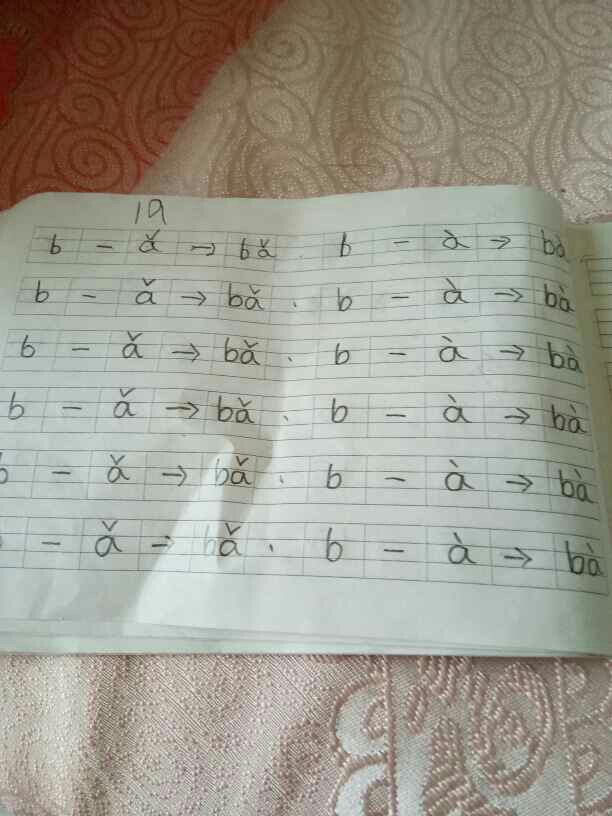 19
b - ǎ → bǎ . b - à → bà
b - ǎ → bǎ . b - à → bà
b - ǎ → bǎ . b - à → bà
b - ǎ → bǎ . b - à → bà
b - ǎ → bǎ . b - à → bà
- ǎ → bǎ . b - à → bà